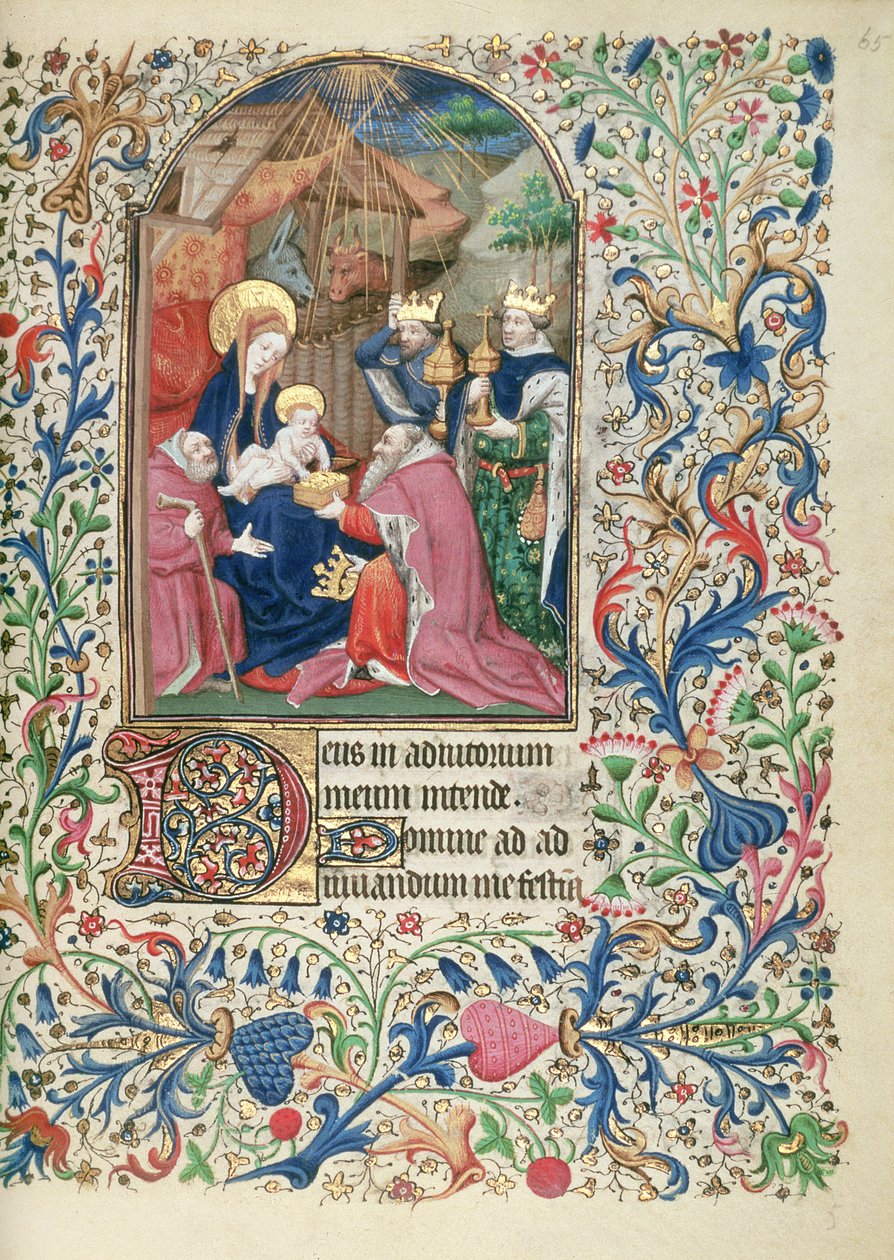 65
Deus in adiutorium
meum intende.
Domine ad ad
iuuandum me festiā
5